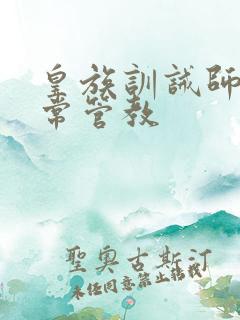 皇族訓誡師
常管教
聖奧古斯汀
未经同意禁止搭載